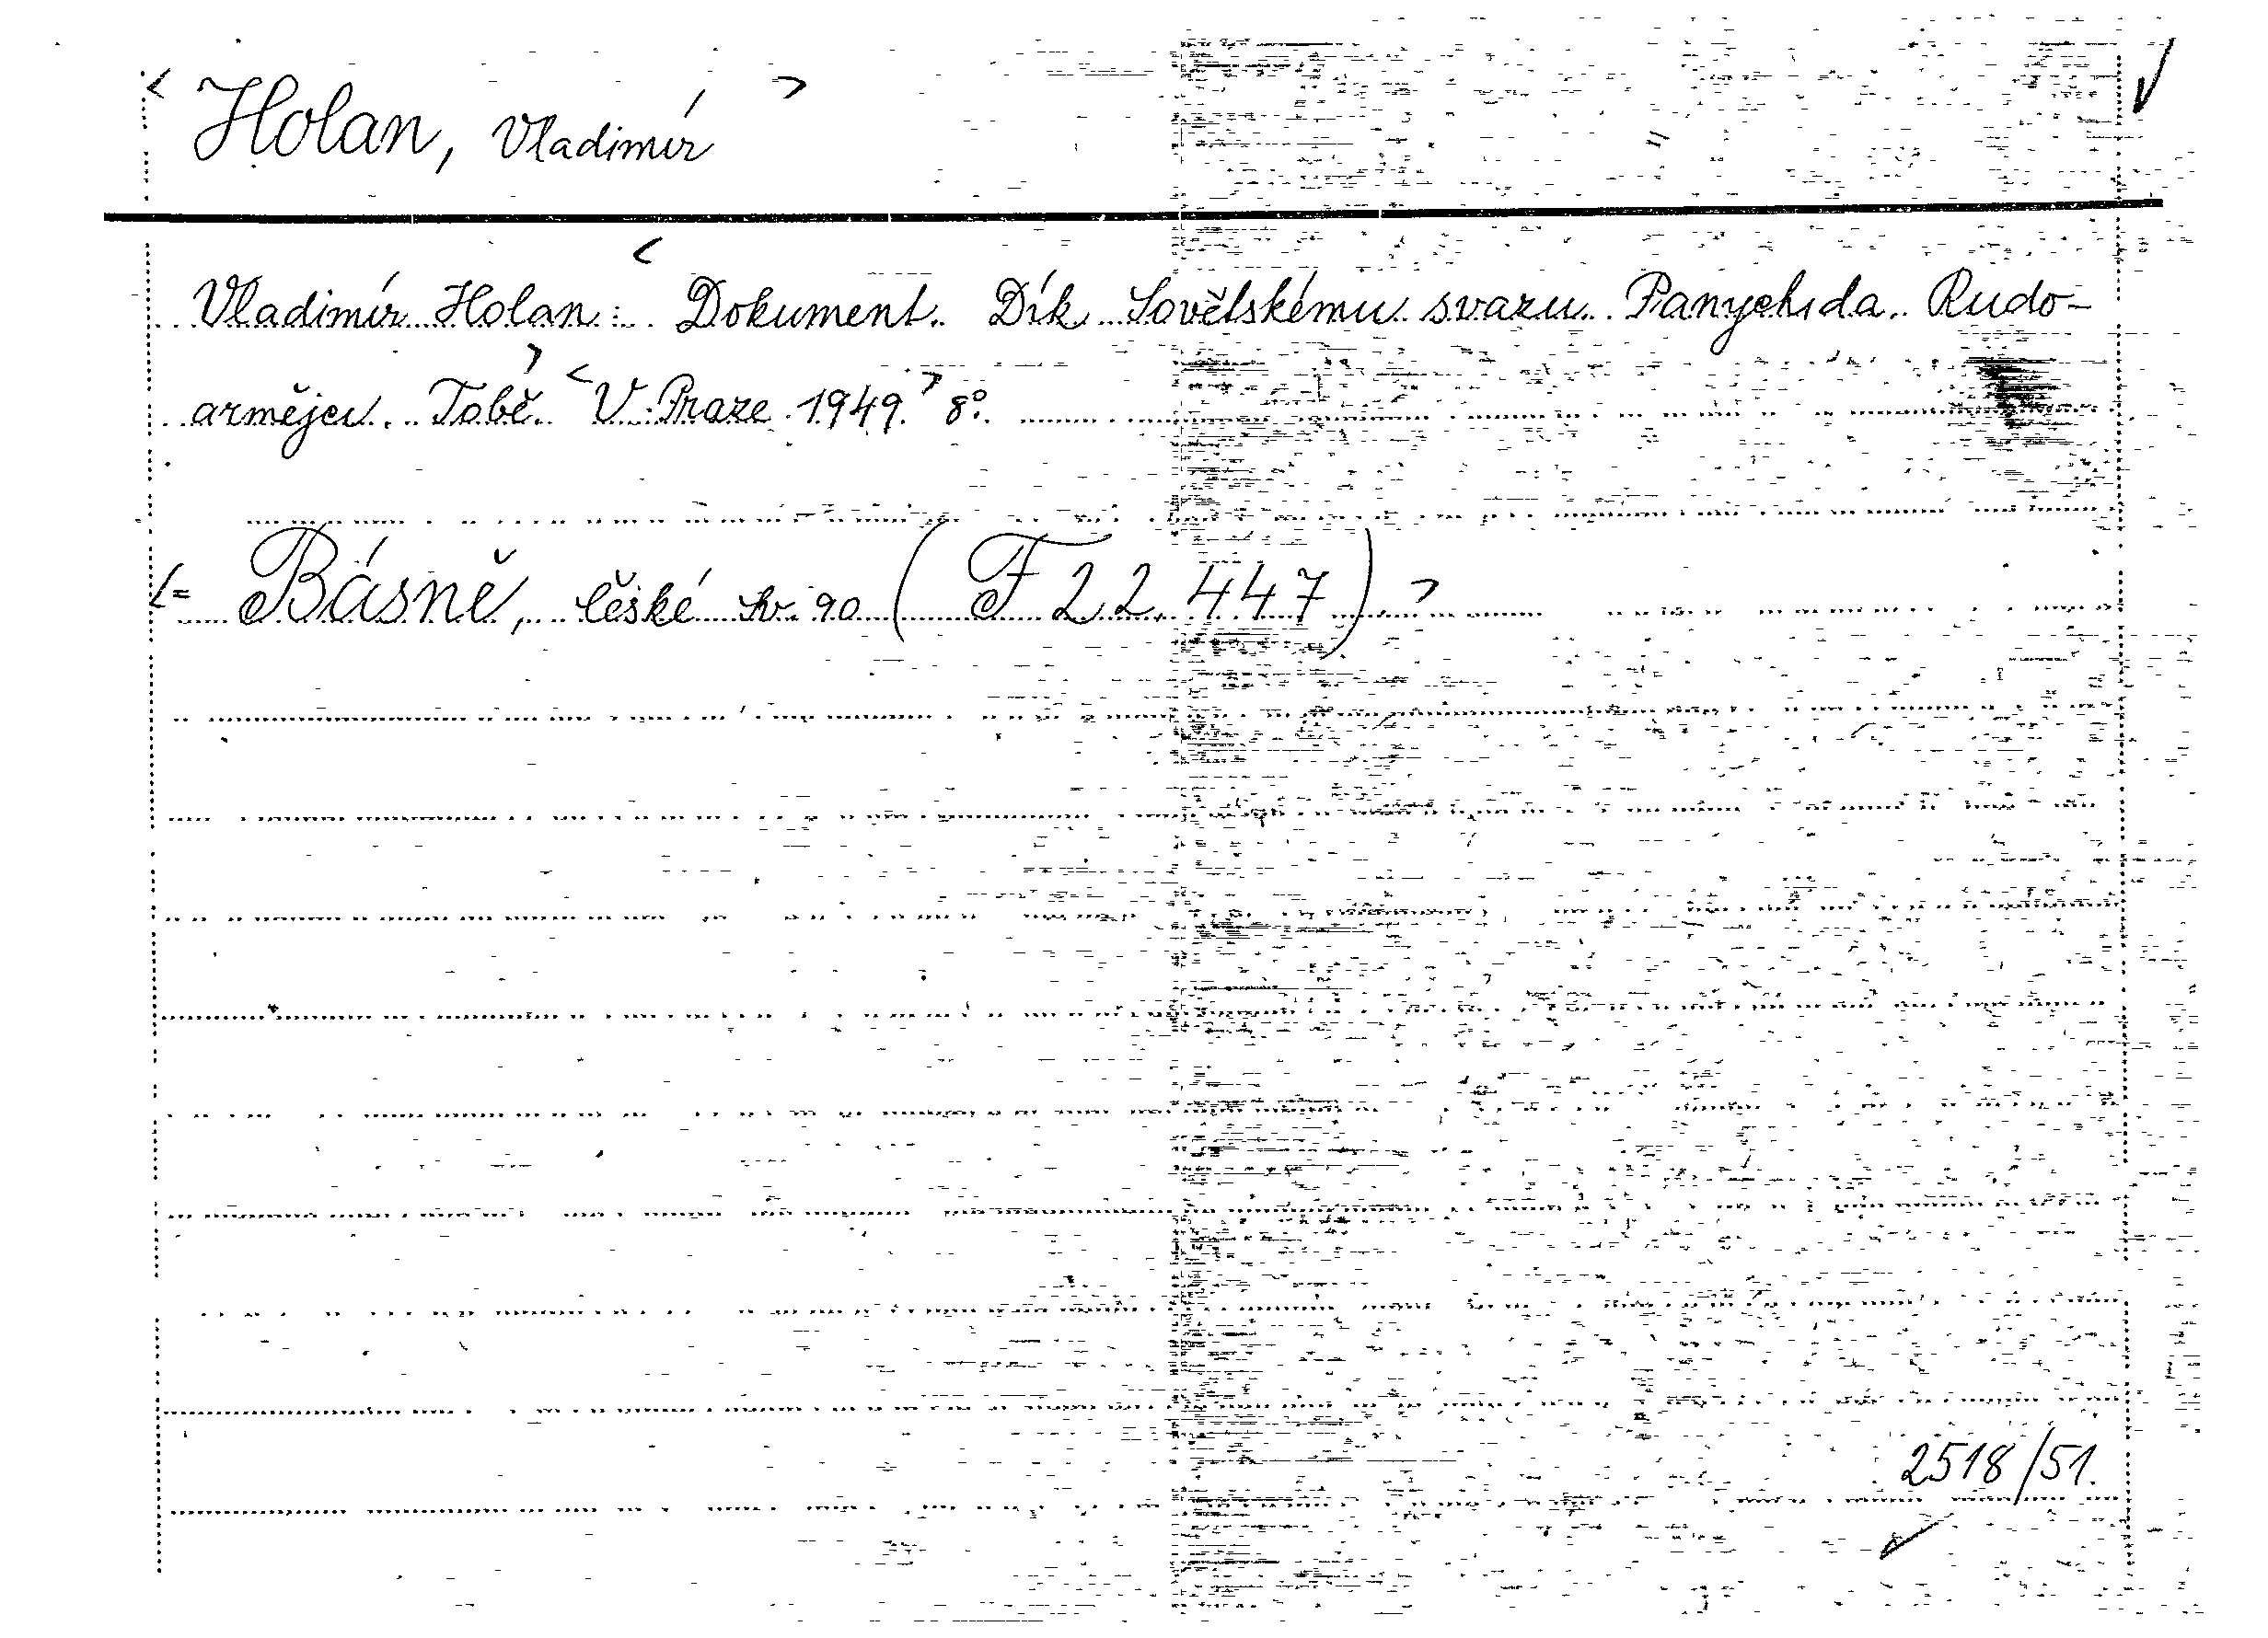 < Holan, Vladimír >
Vladimír Holan: < Dokument. Dík Sovětskému svazu. Panychida. Rudo-
armějci. Tobě. > < V Praze 1949. > 8°.
<= Básně, české sv. 90 (F 22.447). >
2518/51.